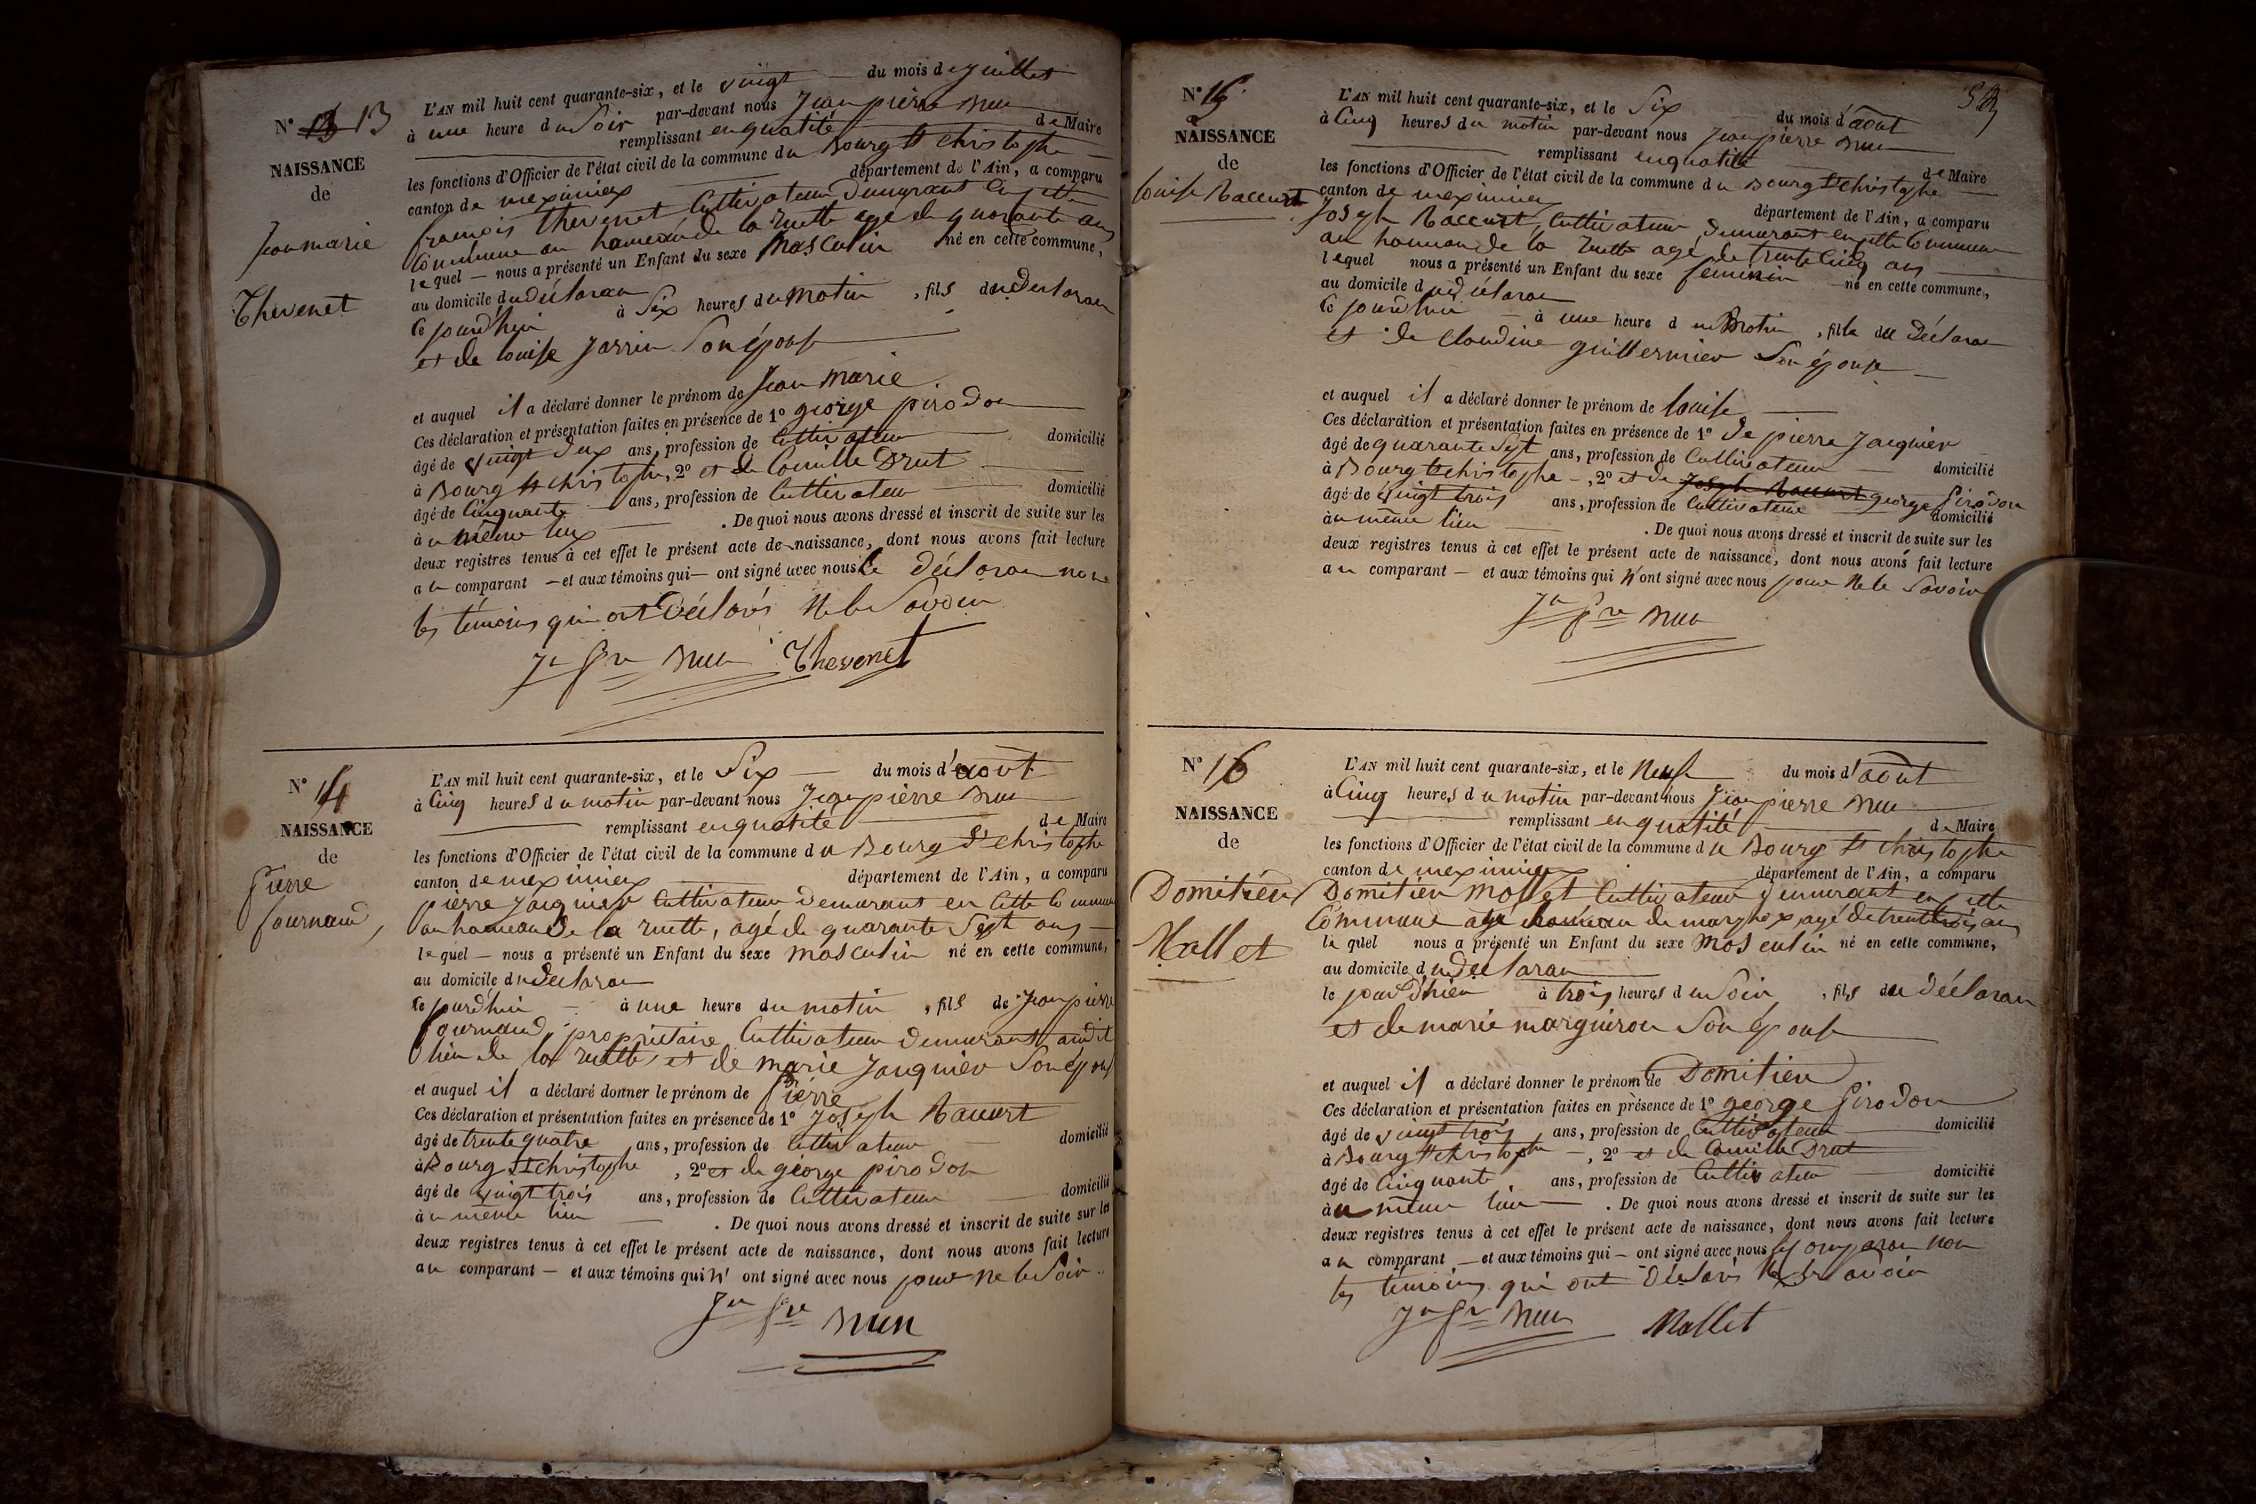 N° 13 13
NAISSANCE
de
Jean marie
Thevenet
L'AN mil huit cent quarante-six, et le vingt du mois de juillet
à une heure du Soir par-devant nous Jean pierre
remplissant en qualité de Maire
les fonctions d'Officier de l'état civil de la commune du Bourg St christophe
canton de meximieux département de l'Ain, a comparu
francois thevenet Cultivateur demurant en cette
Commune au hameau de la ruette agé de quarante ans
lequel — nous a présenté un Enfant du sexe Masculin né en cette commune,
au domicile du déclaran
Ce jourd'hui à Six heures du matin, fils du déclaran
et de louise Jarrin Son épouse
et auquel il a déclaré donner le prénom de Jean Marie
Ces déclaration et présentation faites en présence de 1° george pirodon
âgé de vingt deux ans, profession de Cultivateur domicilié
à Bourg St christophe, 2° et de Camille Drut
âgé de Cinquante ans, profession de Cultivateur domicilié
à u même lieu . De quoi nous avons dressé et inscrit de suite sur les
deux registres tenus à cet effet le présent acte de naissance, dont nous avons fait lecture
a u comparant — et aux témoins qui — ont signé avec nous le déclaran non
les témoins qui ont déclarés Ne le Savoir
Jn pre Thevenet
N° 14
NAISSANCE
de
Pierre
fournand
L'AN mil huit cent quarante-six, et le Six du mois d'août
à Cinq heures du matin par-devant nous Jean pierre
remplissant en qualité de Maire
les fonctions d'Officier de l'état civil de la commune du Bourg St christophe
canton de meximieux département de l'Ain, a comparu
pierre Jacquier Cultivateur demurant en Cette Commune
au hameau de la ruette, agé de quarante Sept ans
lequel — nous a présenté un Enfant du sexe masculin né en cette commune,
au domicile du déclaran
Ce jourd'hui à une heure du matin, fils de Jean pierre
fournand, propriétaire Cultivateur demurant audit
lieu de la ruette, et de marie Jacquier Son épouse
et auquel il a déclaré donner le prénom de Pierre
Ces déclaration et présentation faites en présence de 1° Joseph Raccurt
âgé de trente quatre ans, profession de Cultivateur domicilié
à Bourg St christophe, 2° et de george pirodon
âgé de vingt trois ans, profession de Cultivateur domicilié
à u même lieu . De quoi nous avons dressé et inscrit de suite sur les
deux registres tenus à cet effet le présent acte de naissance, dont nous avons fait lecture
a u comparant — et aux témoins qui N' ont signé avec nous pour ne le
Jn pre
N° 15
NAISSANCE
de
louise Raccurt
L'AN mil huit cent quarante-six, et le Six du mois d'août
à Cinq heures du matin par-devant nous Jean pierre
remplissant en qualité de Maire
les fonctions d'Officier de l'état civil de la commune du Bourg St christophe
canton de meximieux département de l'Ain, a comparu
Joseph Raccurt, Cultivateur, demurant en cette Commune
au hameau de la ruette agé de trente Cinq ans
lequel nous a présenté un Enfant du sexe feminin né en cette commune,
au domicile du déclaran
Ce jourd'hui à une heure du matin, fille du Déclaran
et de Claudine guillermier Son épouse
et auquel il a déclaré donner le prénom de louise
Ces déclaration et présentation faites en présence de 1° de pierre Jacquier
âgé de quarante Sept ans, profession de Cultivateur domicilié
à Bourg St christophe —, 2° et de Joseph Raccurt george Pirodon
âgé de vingt trois ans, profession de Cultivateur domicilié
à u même lieu . De quoi nous avons dressé et inscrit de suite sur les
deux registres tenus à cet effet le présent acte de naissance, dont nous avons fait lecture
a u comparant — et aux témoins qui N'ont signé avec nous pour Ne le Savoir
Jn pre
N° 16
NAISSANCE
de
Domitien
Mallet
L'AN mil huit cent quarante-six, et le Neuf du mois d'août
à Cinq heures du matin par-devant nous Jean pierre
remplissant en qualité de Maire
les fonctions d'Officier de l'état civil de la commune du Bourg St christophe
canton de meximieux département de l'Ain, a comparu
Domitien Mollet Cultivateur demurant en cette
Commune agé hameau de agé de trente trois ans
lequel nous a présenté un Enfant du sexe Masculin né en cette commune,
au domicile du déclaran
le jour d'hier à trois heures du Soir, fils du déclaran
et de marie marguiron Son épouse
et auquel il a déclaré donner le prénom de Domitien
Ces déclaration et présentation faites en présence de 1° george Pirodon
âgé de vingt trois ans, profession de Cultivateur domicilié
à Bourg St christophe —, 2° et de Camille Drut
âgé de Cinquante ans, profession de Cultivateur domicilié
à u même lieu . De quoi nous avons dressé et inscrit de suite sur les
deux registres tenus à cet effet le présent acte de naissance, dont nous avons fait lecture
a u comparant — et aux témoins qui — ont signé avec nous le comparan non
les témoins qui ont déclarés Ne le Savoir
Jn pre Mallet